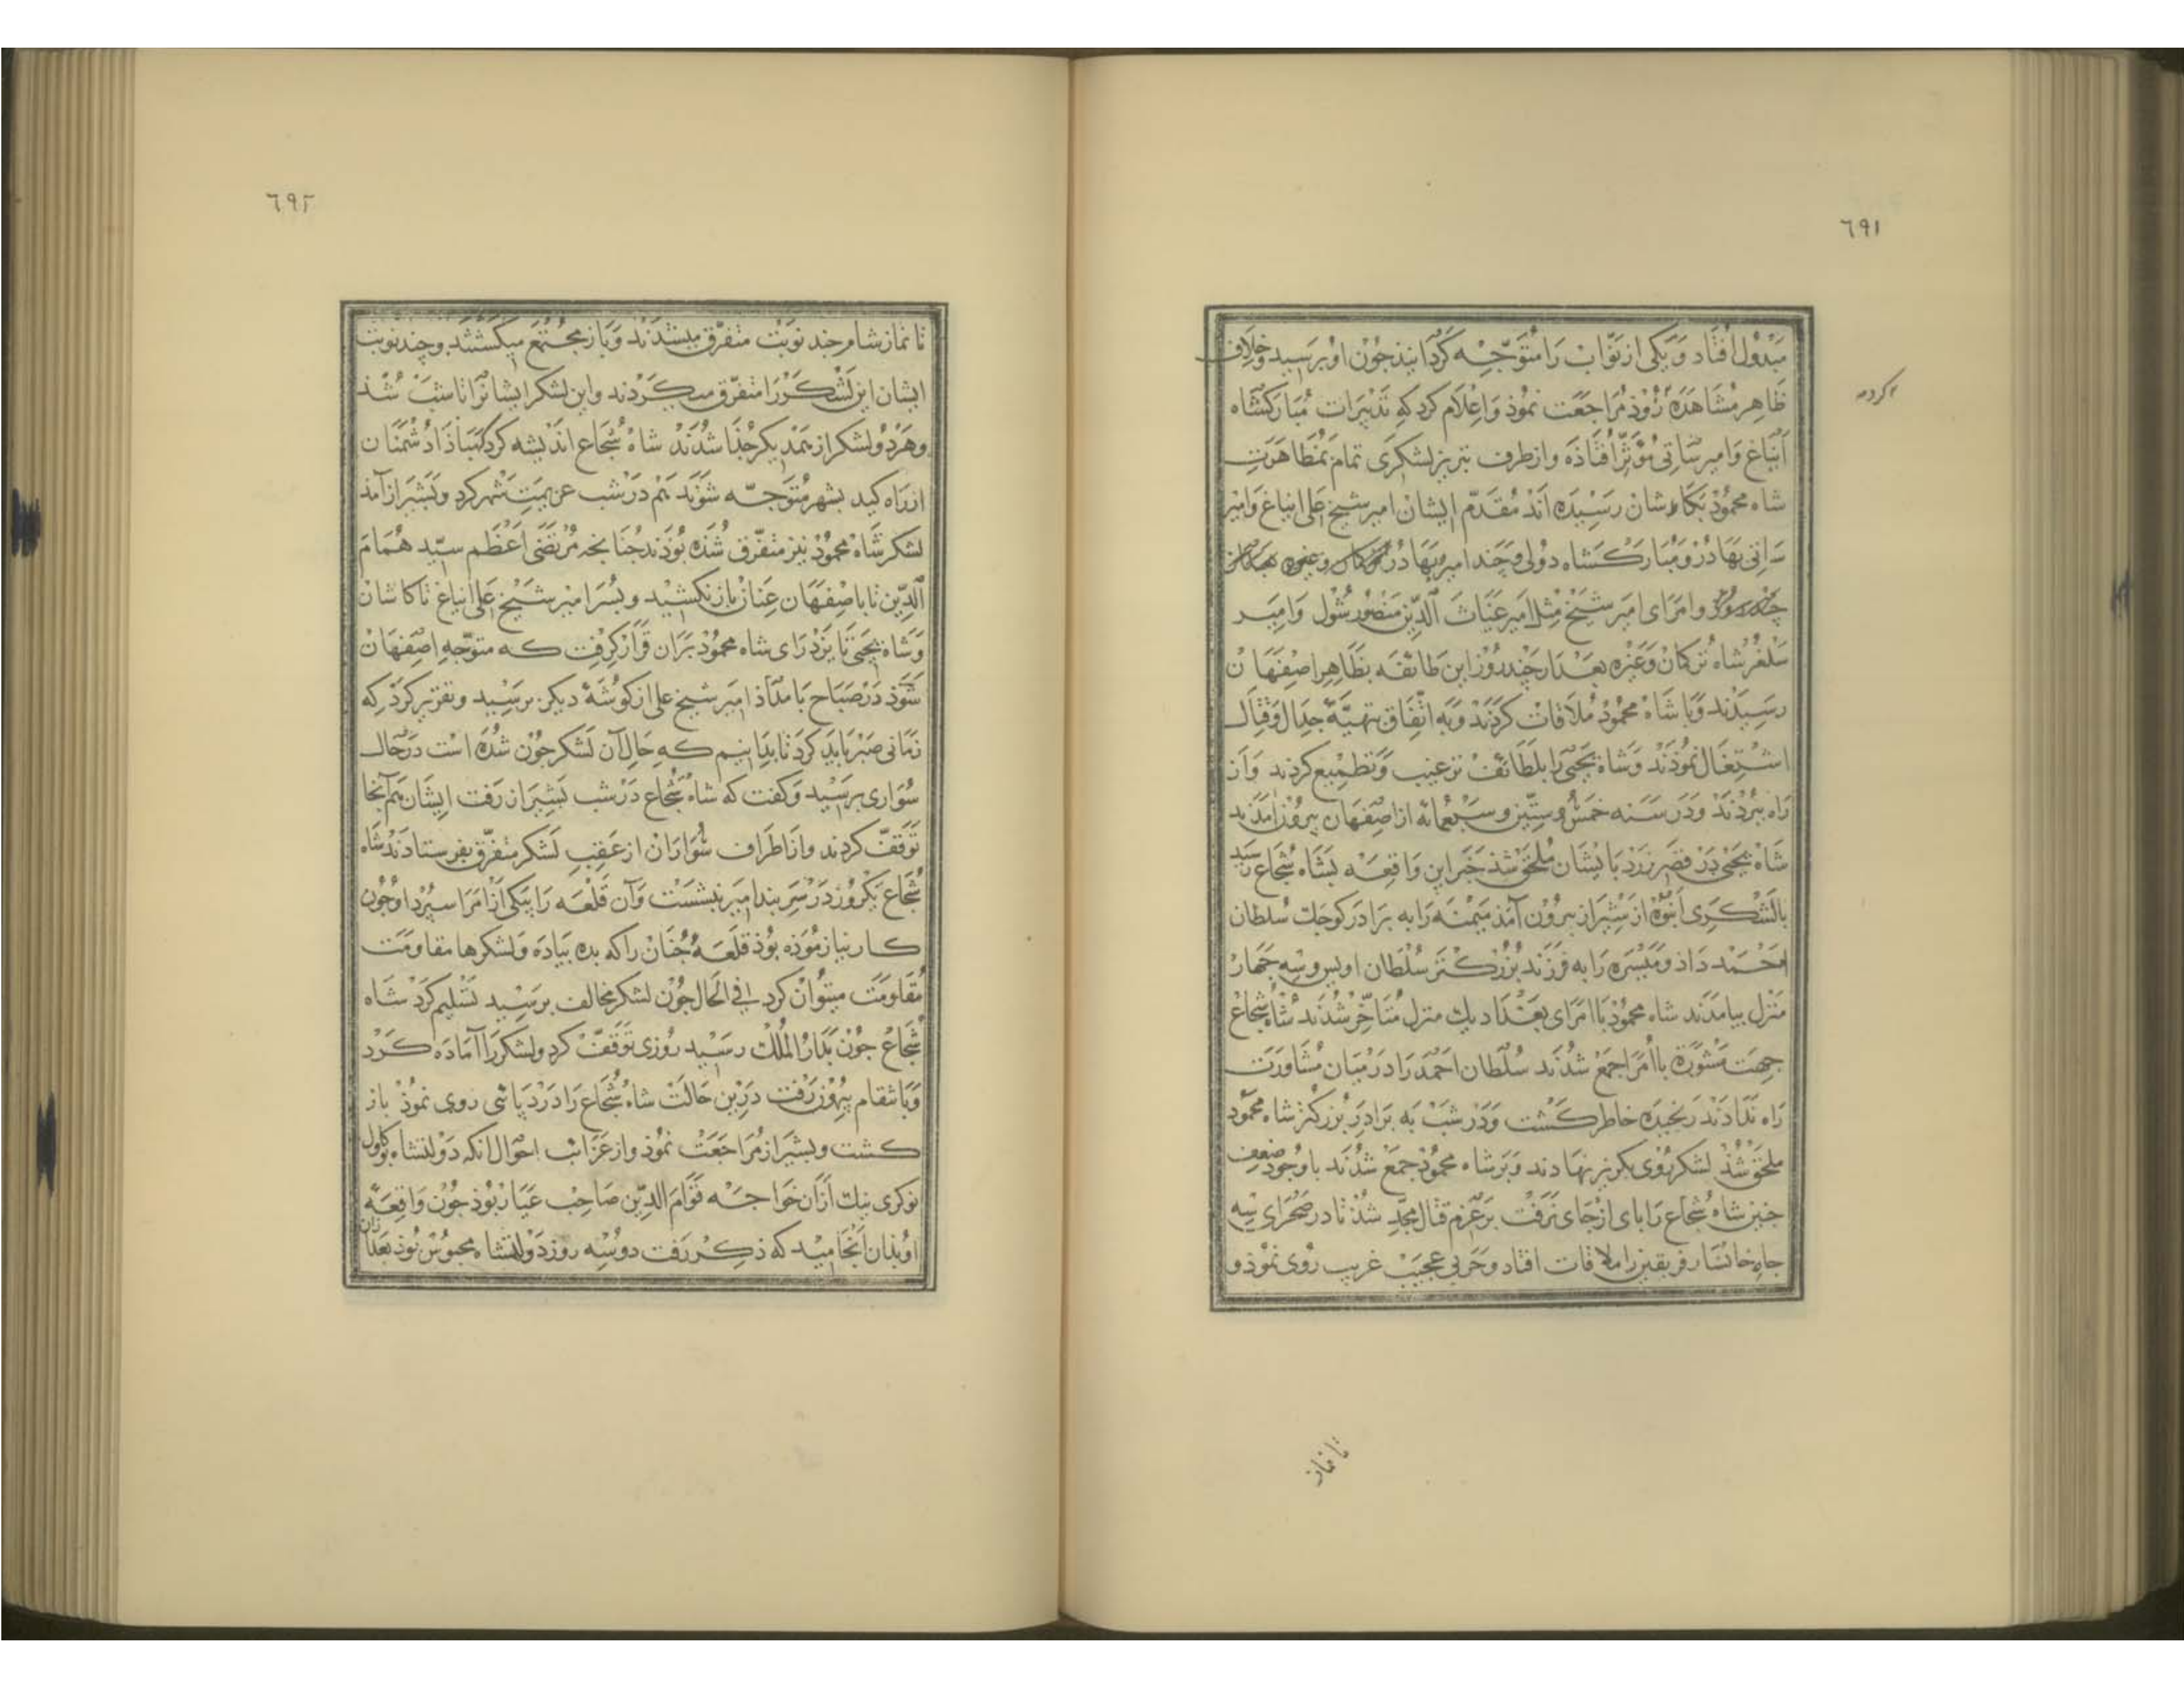 ٦٩١
مبذول افتاد و یکی از نوّاب را متوجّه کردانیذ جون او برسید و خلاف
اکرده
ظاهر مشاهده روذ مراجعت نموذ و اعلام کرد که تدبیرات مبارکشاه
ایناغ و امیر ساتی مؤثر افتاذه و از طرف تبریز لشکری تمام بمظاهرت
شاه محموذ بکاشان رسیده اند مقدّم ایشان امیر شیخ علی ایناغ و امیر
ساتی بهادر و مبارکشاه دولی و چند امیر بهادر وغیره
و امرای امیر شیخ مثل امیر غیاث الدین منصور شول و امیر
سلغر شاه ترکمان و غیره بعد از چند روز این طائفه بظاهر اصفهان
رسیدند و با شاه محموذ ملاقات کردند و به اتّفاق بتهیّهٔ جدال و قتال
اشتغال نموذند و شاه یحیی را بلطائف ترغیب و تطمیع کردند و از
راه ببردند و در سنه خمس و ستّین و سبعمائة از اصفهان بیرون آمدند
شاه یحیی در قصر زرد بایشان ملحق شذ خبر این واقعه بشاه شجاع رسید
با لشکری انبوه از شیراز بیرون آمذ میمنه را به برادر کوجک سلطان
احمد داذ و میسره را به فرزند بزرکتر سلطان اویس و سه جهار
منزل بیامدند شاه محموذ با امرای بغداد یک منزل متأخّر شدند شاه شجاع
جهت مشورة با امرا جمع شدند سلطان احمد را در میان مشاورت
راه ندادند رنجیده خاطر کشت و در شب به برادر بزرکتر شاه محموذ
ملحق شذ لشکر روی بکریز نهادند و بر شاه محموذ جمع شدند با وجود ضعف
جنین شاه شجاع را پای از جای نرفت بر عزم قتال مجدّ شذ تا در صحرای سه
جاه خانسار فریقین را ملاقات افتاد و حربی عجیب غریب روی نموذ و
تا نماز
٦٩٢
تا نماز شام جند نوبت متفرّق میشدند و باز مجتمع میکشتند و جند نوبت
ایشان این لشکر را متفرّق میکردند و این لشکر ایشان را تا شب شذ
و هر دو لشکر از یمدیکر جذا شدند شاه شجاع اندیشه کرد که مباذا دشمنان
از راه کید بشهر متوجّه شوند هم در شب عزیمت شهر کرد و بشیراز آمذ
لشکر شاه محموذ نیز متفرّق شذه بوذند جنانجه مرتضی اعظم سیّد همام
الدّین تا باصفهان عنان باز نکشید و پسر امیر شیخ علی ایناغ تا کاشان
و شاه یحیی تا یزد رای شاه محموذ بران قرار کرفت که متوجّه اصفهان
شوذ در صباح بامداذ امیر شیخ علی از کوشهٔ دیکر برسید و تقریر کرد که
زمانی صبر باید کرد تا بدانیم که حال آن لشکر جون شده است در حال
سواری برسید و کفت که شاه شجاع در شب بشیراز رفت ایشان هم آنجا
توقّف کردند و از اطراف سواران از عقب لشکر متفرّق بفرستادند شاه
شجاع یکروز در سر بند امیر بنشست و آن قلعه را بیکی از امرا سپرد او جون
کار نیازموذه بوذ قلعهٔ جنان را که بده بیاده و لشکرها مقاومت
مقاومت میتوان کرد فی الحال جون لشکر مخالف برسید تسلیم کرد شاه
شجاع جون بدار الملک رسید روزی توقّف کرد و لشکر را آماده کرد
و بانتقام بیرون رفت درین حالت شاه شجاع را درد پائی روی نموذ باز
کشت و بشیراز مراجعت نموذ و از غرائب احوال انکه دولتشاه بکاول
نوکری نیک ازان خواجه قوام الدّین صاحب عیار بوذ جون واقعهٔ
او بذان انجامید که ذکر رفت دو سه روز دولتشاه محبوس بوذ بعد ازان